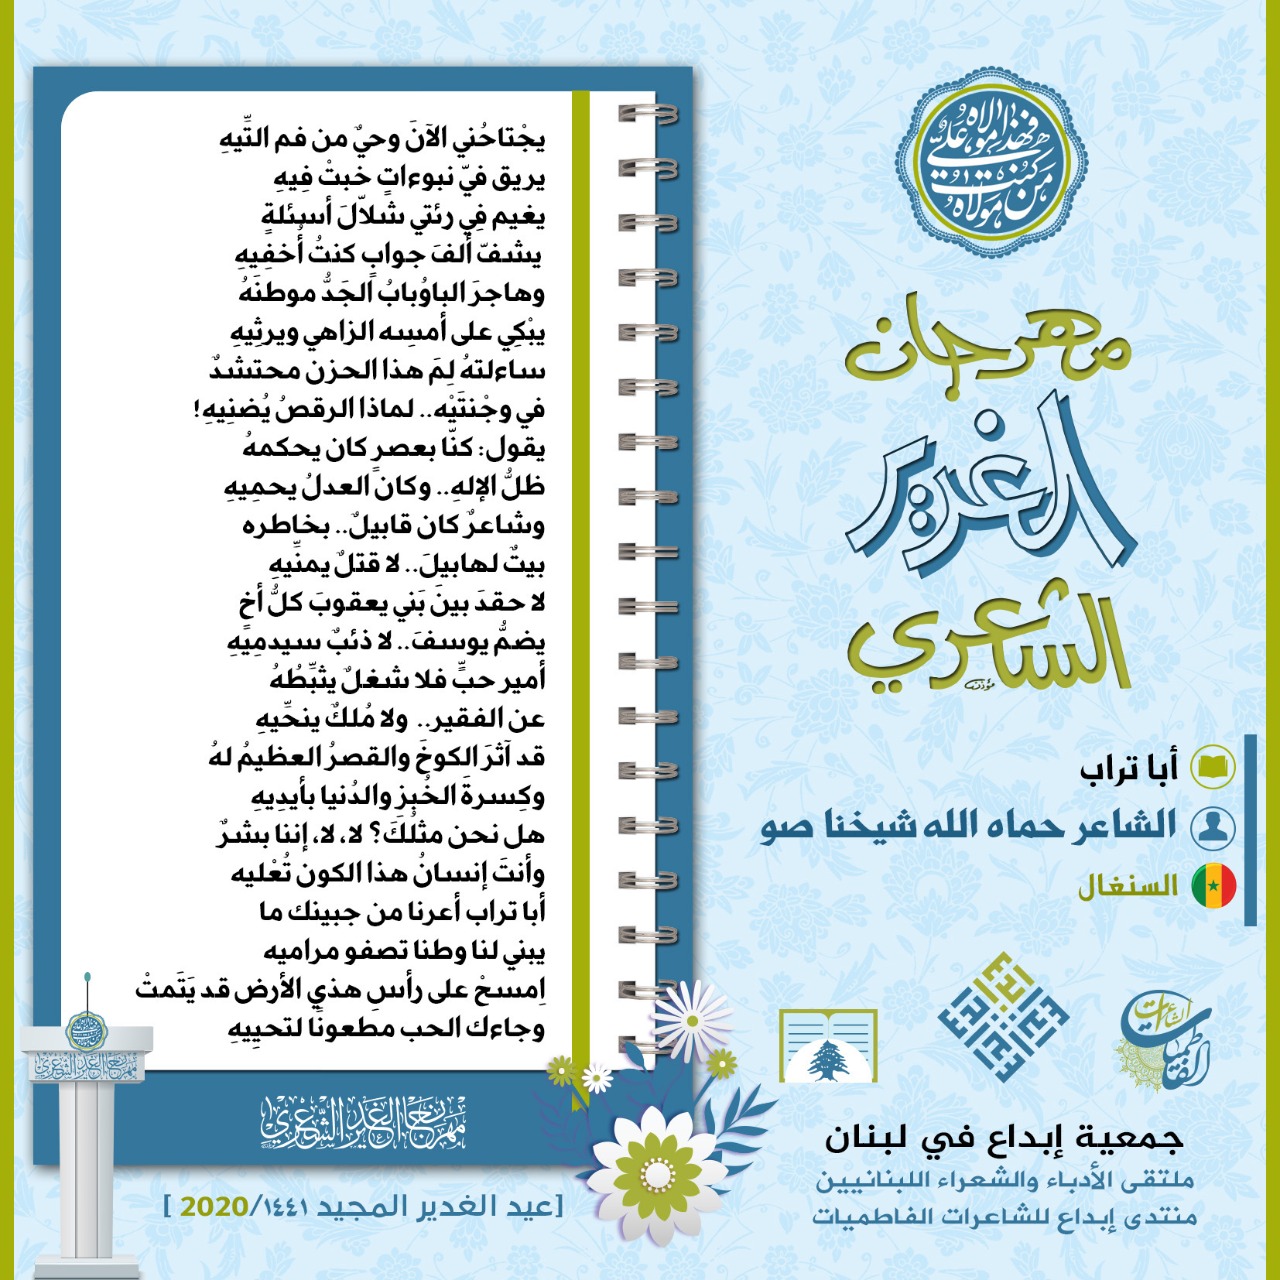 من كنت مولاه
فهذا علي مولاه
مهرجان
الغدير
الشعري
أبا تراب
الشاعر حماه الله شيخنا صو
السنغال
يجْتاحُني الآنَ وحيٌ من فم التِّيهِ
يريق فيّ نبوءاتٍ خبتْ فِيهِ
يغيم فِي رئتي شلاّلَ أسئلةٍ
يشفّ ألفَ جوابٍ كنتُ أُخفِيهِ
وهاجرَ الباوُبابُ الجَدُّ موطنَهُ
يبْكِي على أمسِه الزاهي ويرثِيهِ
ساءلتهُ لِمَ هذا الحزن محتشدٌ
في وجْنتَيْه.. لماذا الرقصُ يُضنِيهِ!
يقول: كنّا بعصرٍ كان يحكمهُ
ظلُّ الإلهِ.. وكان العدلُ يحمِيهِ
وشاعرٌ كان قابيلٌ.. بخاطره
بيتٌ لهابيلَ.. لا قتلٌ يمنِّيهِ
لا حقدَ بينَ بَني يعقوبَ كلُّ أخٍ
يضمُّ يوسفَ.. لا ذئبٌ سيدمِيهِ
أمير حبٍّ فلا شغلٌ يثبِّطُهُ
عن الفقير.. ولا مُلكٌ ينحِّيهِ
قد آثرَ الكوخَ والقصرُ العظيمُ لهُ
وكِسرةَ الخُبزِ والدُنيا بأيدِيهِ
هل نحن مثلُكَ؟ لا، لا، إننا بشرٌ
وأنتَ إنسانُ هذا الكون تُعْليه
أبا تراب أعرنا من جبينك ما
يبني لنا وطنا تصفو مراميه
اِمسحْ على رأسِ هذي الأرض قد يَتَمتْ
وجاءك الحب مطعونًا لتحيِيهِ
مهرجان الغدير الشعري
[عيد الغدير المجيد ١٤٤١/2020 ]
جمعية إبداع في لبنان
ملتقى الأدباء والشعراء اللبنانيين
منتدى إبداع للشاعرات الفاطميات